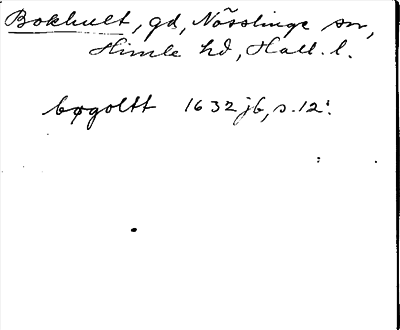 Bokhult, gd, Nösslinge sn,
Himle hd, Hall. l.
bøgoltt 1632 jb, s. 12'.